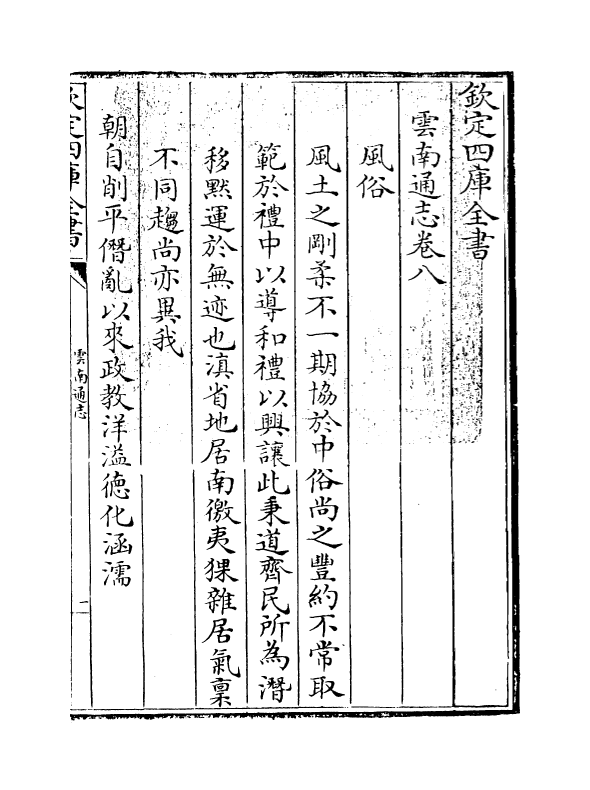 欽定四庫全書
雲南通志卷八
風俗
風土之剛柔不一期協於中俗尚之豐約不常取
範於禮中以導和禮以興讓此秉道齊民所為潛
移黙運於無迹也滇省地居南徼夷猓雜居氣稟
不同趨尚亦異我
朝自削平僭亂以來政教洋溢徳化涵濡
欽定四庫全書
雲南通志
一